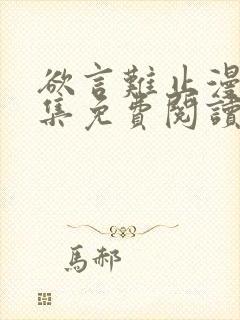 欲言難止漫
集免費閱讀
馬郝